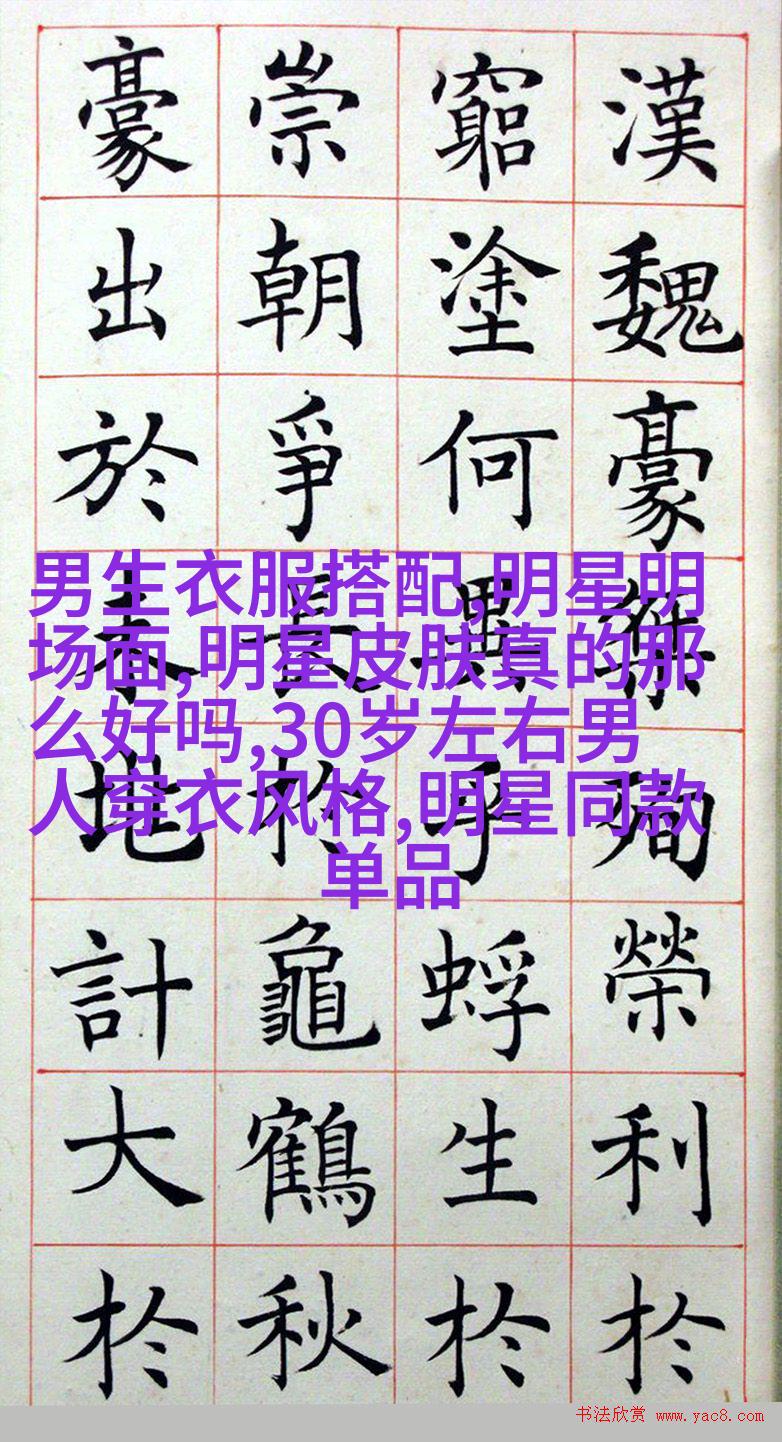 漢魏豪殉榮利於
窮塗何異乎蜉生於
崇朝爭長於龜鶴秋
豪出於地計大於
男生衣服搭配,明星明
场面,明星皮肤真的那
么好吗,30岁左右男
人穿衣风格,明星同款
单品
书法欣赏 www.yac8.com